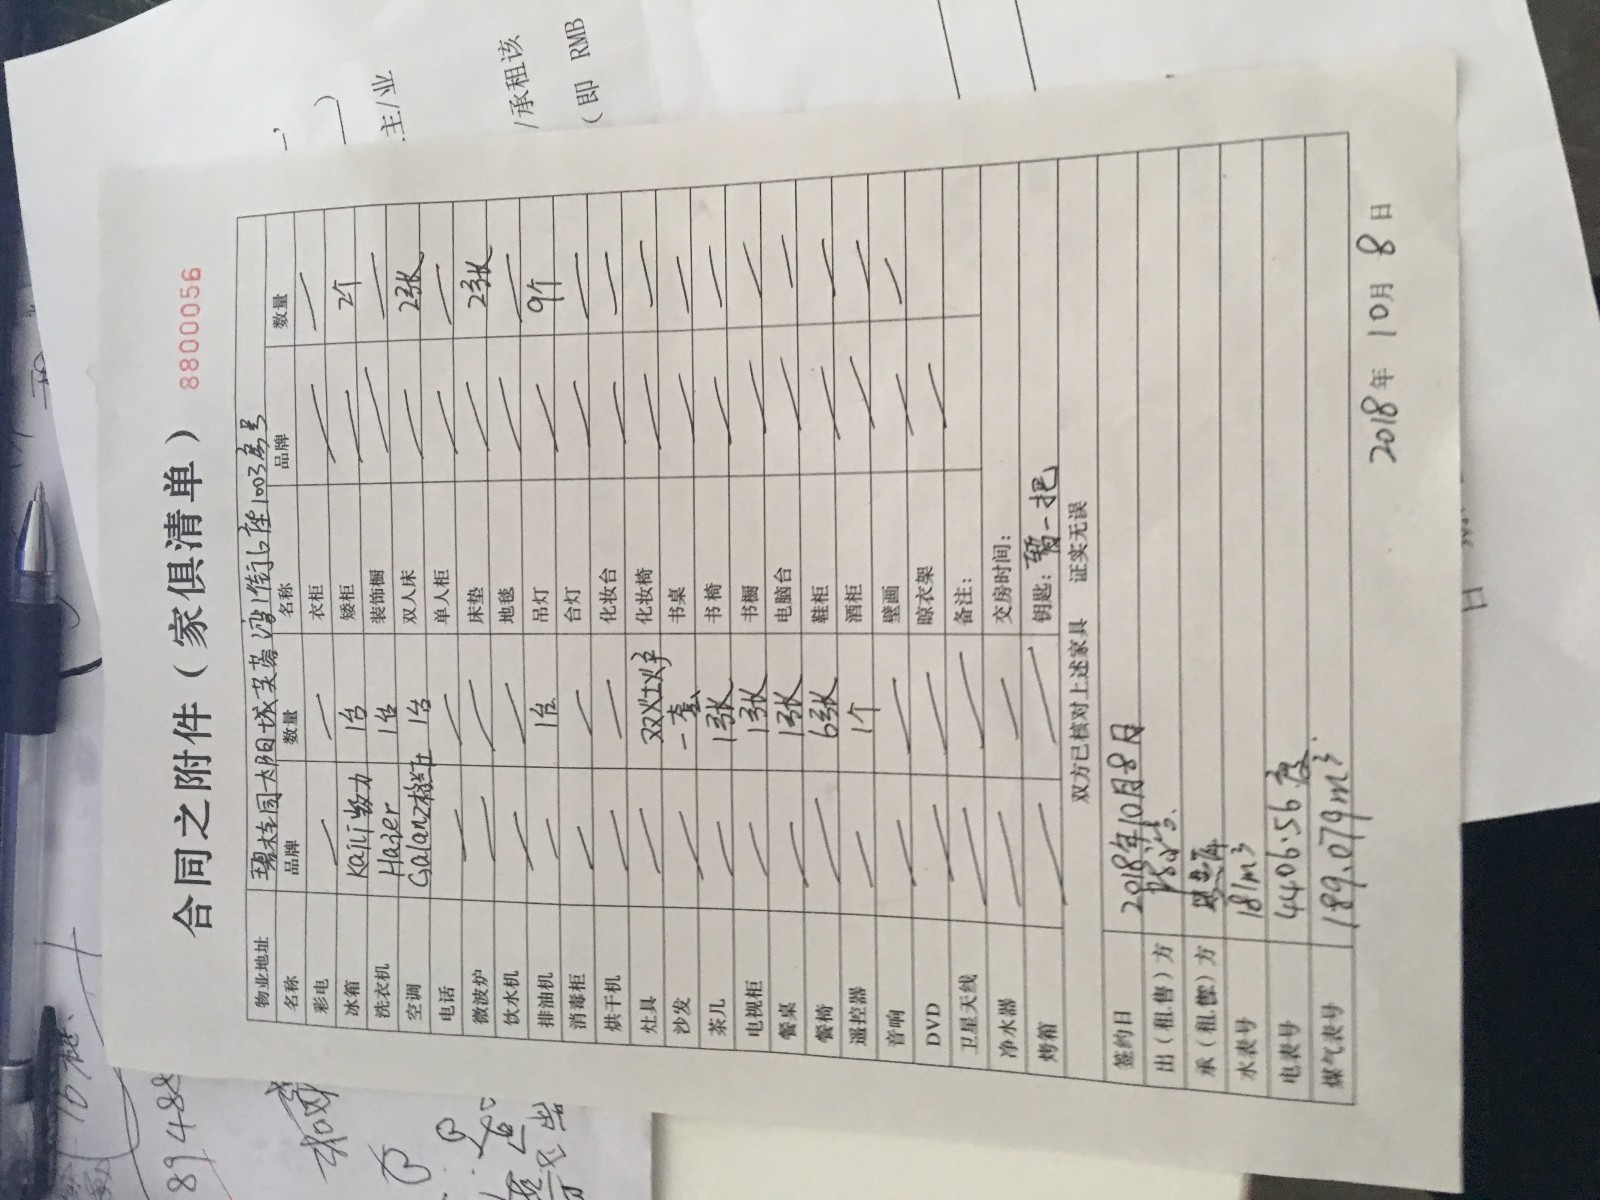 合同之附件（家俱清单） 8800056
物业地址 碧桂园太阳城芙蓉湾1街6座1003房号
名称 品牌 数量 名称 品牌 数量
彩电 衣柜
冰箱 1台 矮柜 2个
洗衣机 Haier 1台 装饰橱
空调 Galanz格兰仕 1台 双人床 2张
电话 单人柜
微波炉 床垫 2张
饮水机 地毯
排油机 1台 吊灯 9个
消毒柜 台灯
烘干机 化妆台
灶具 双灶炉 化妆椅
沙发 一套 书桌
茶几 1张 书椅
电视柜 1张 书橱
餐桌 1张 电脑台
餐椅 6张 鞋柜
遥控器 1个 酒柜
音响 壁画
DVD 晾衣架
卫星天线 备注：
净水器 交房时间：
烤箱 钥匙：暂一把
双方已核对上述家具 证实无误
签约日 2018年10月8日
出（租.售）方
承（租.售）方
水表号 181m³
电表号 4406.56度
煤气表号 189.079m³
2018年10月8日
主/业
/承租该
（即 RMB
16楼
日